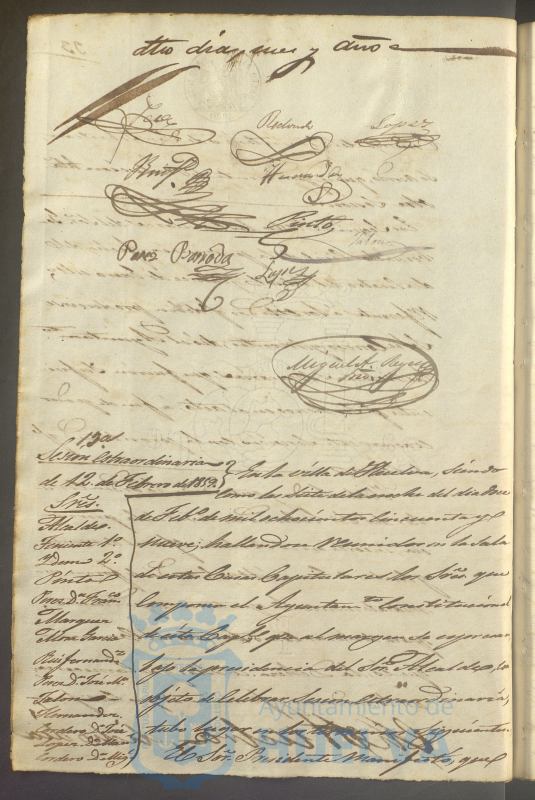 dho dia, mes y año =
Redondo
Lopez
Hernandez
Pinto
Perez Barroda
Lopez
Miguel A. Reyes
Srio
13ª
Sesion Extraordinaria
de 12 de Febrero de 1859.
Sres.
Alcalde.
Teniente 1º
Ydem 2º
Pinto
Perez Dn. Franco
Marquez
Mora Garcia
Ruifernandez
Perez Dn. José Mª
Hernandez
Cordero Dn. José
Lopez Dn.
Cordero Dn. Mig
En la villa de Huelva, siendo
como las siete de la noche del dia doce
de Febº de mil ochocientos cincuenta y
nueve, hallandose reunidos en la Sala
de estas Casas Capitulares los Sres que
componen el Ayuntamto Constitucional
de esta Capl que al margen se espresan,
bajo la presidencia del Sor. Alcalde, con
objeto de celebrar sesion extraordinaria,
tubo lugar
El Sor. Presidente manifestó, que
Ayuntamiento de
HUELVA